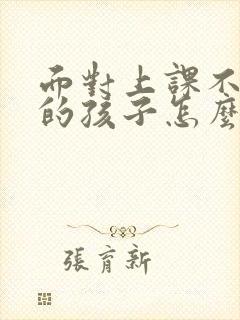 而對上課不
的孩子怎麼
張育新